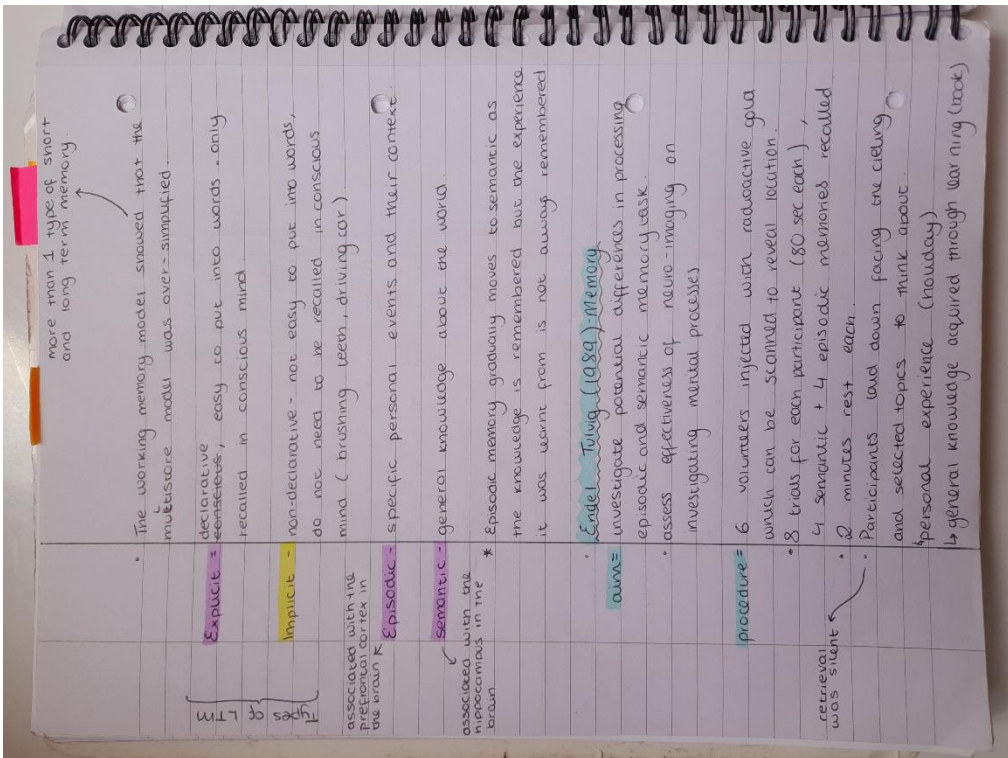 more than 1 type of short
and long term memory.
• The working memory model showed that the
multistore model was over-simplified.
Types of
LTM
declarative
Explicit = conscious, easy to put into words - only
recalled in conscious mind
Implicit - non-declarative - not easy to put into words,
do not need to be recalled in conscious
mind (brushing teeth, driving car)
associated with the
prefrontal cortex in
the brain
Episodic - specific personal events and their context
semantic - general knowledge about the word
associated with the
hippocampus in the
brain
* Episodic memory gradually moves to semantic as
the knowledge is remembered but the experience
it was learnt from is not always remembered
• Endel Tulvig (1989) - Memory
aim = investigate potential differences in processing
episodic and semantic memory task.
• assess effectiveness of neuro-imaging on
investigating mental processes
procedure = 6 volunteers injected with radioactive gold
which can be scanned to reveal location.
• 8 trials for each participant (80 sec each),
4 semantic + 4 episodic memories recalled
• 2 minutes rest each.
retrieval
was silent
• Participants laid down facing the cieling
and selected topics to think about.
↳ personal experience (holiday)
↳ general knowledge acquired through learning (book)